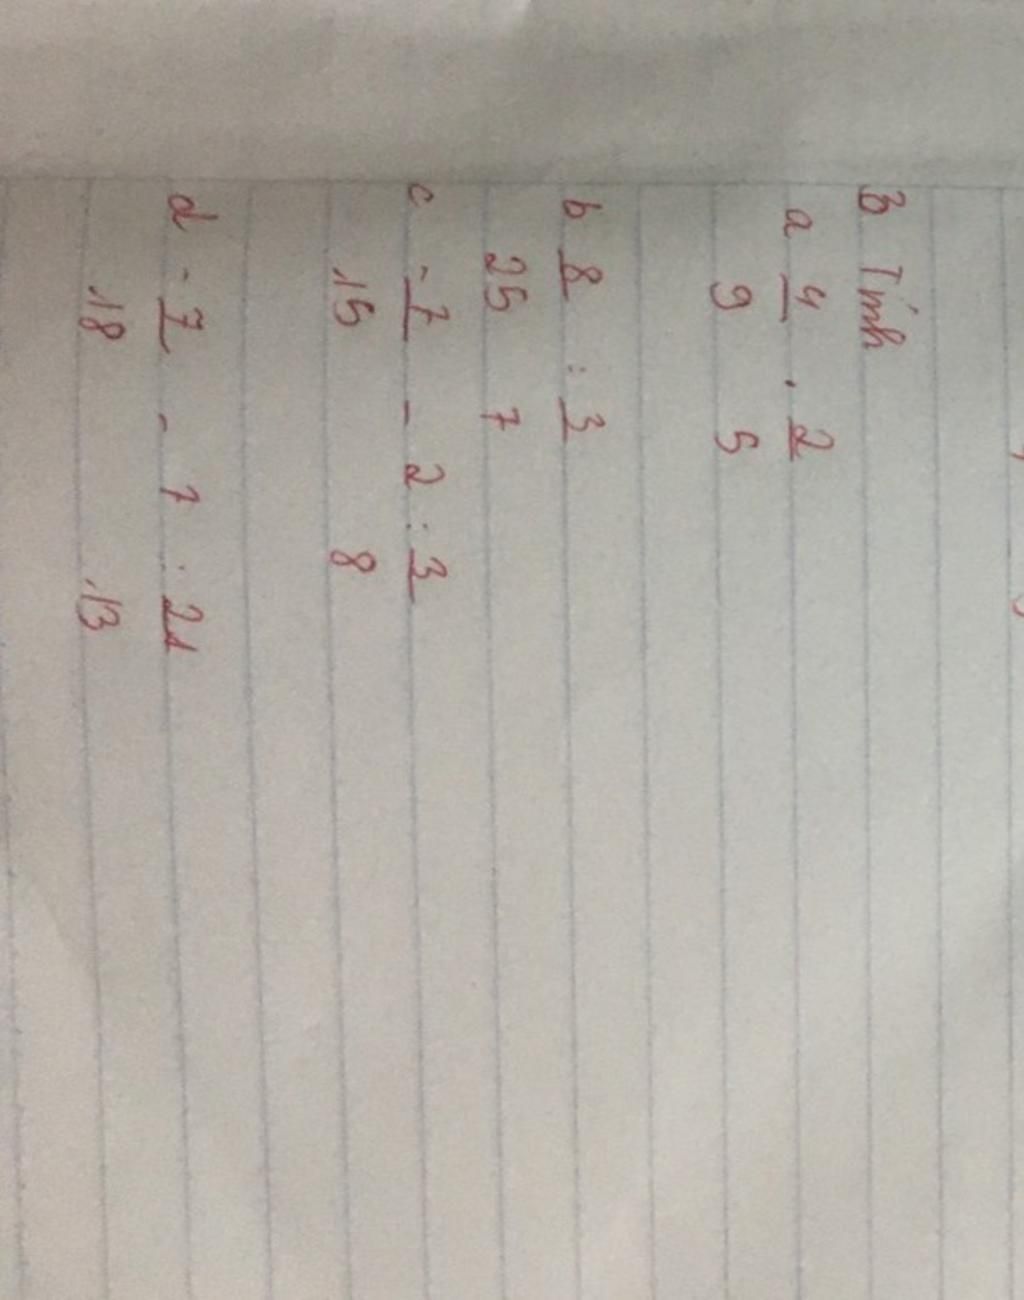 3 Tính
a 4/9 . 2/5
b 8/25 : 3/7
c -7/15 - 2 : 3/8
d -7/18 - 7 . 21/13